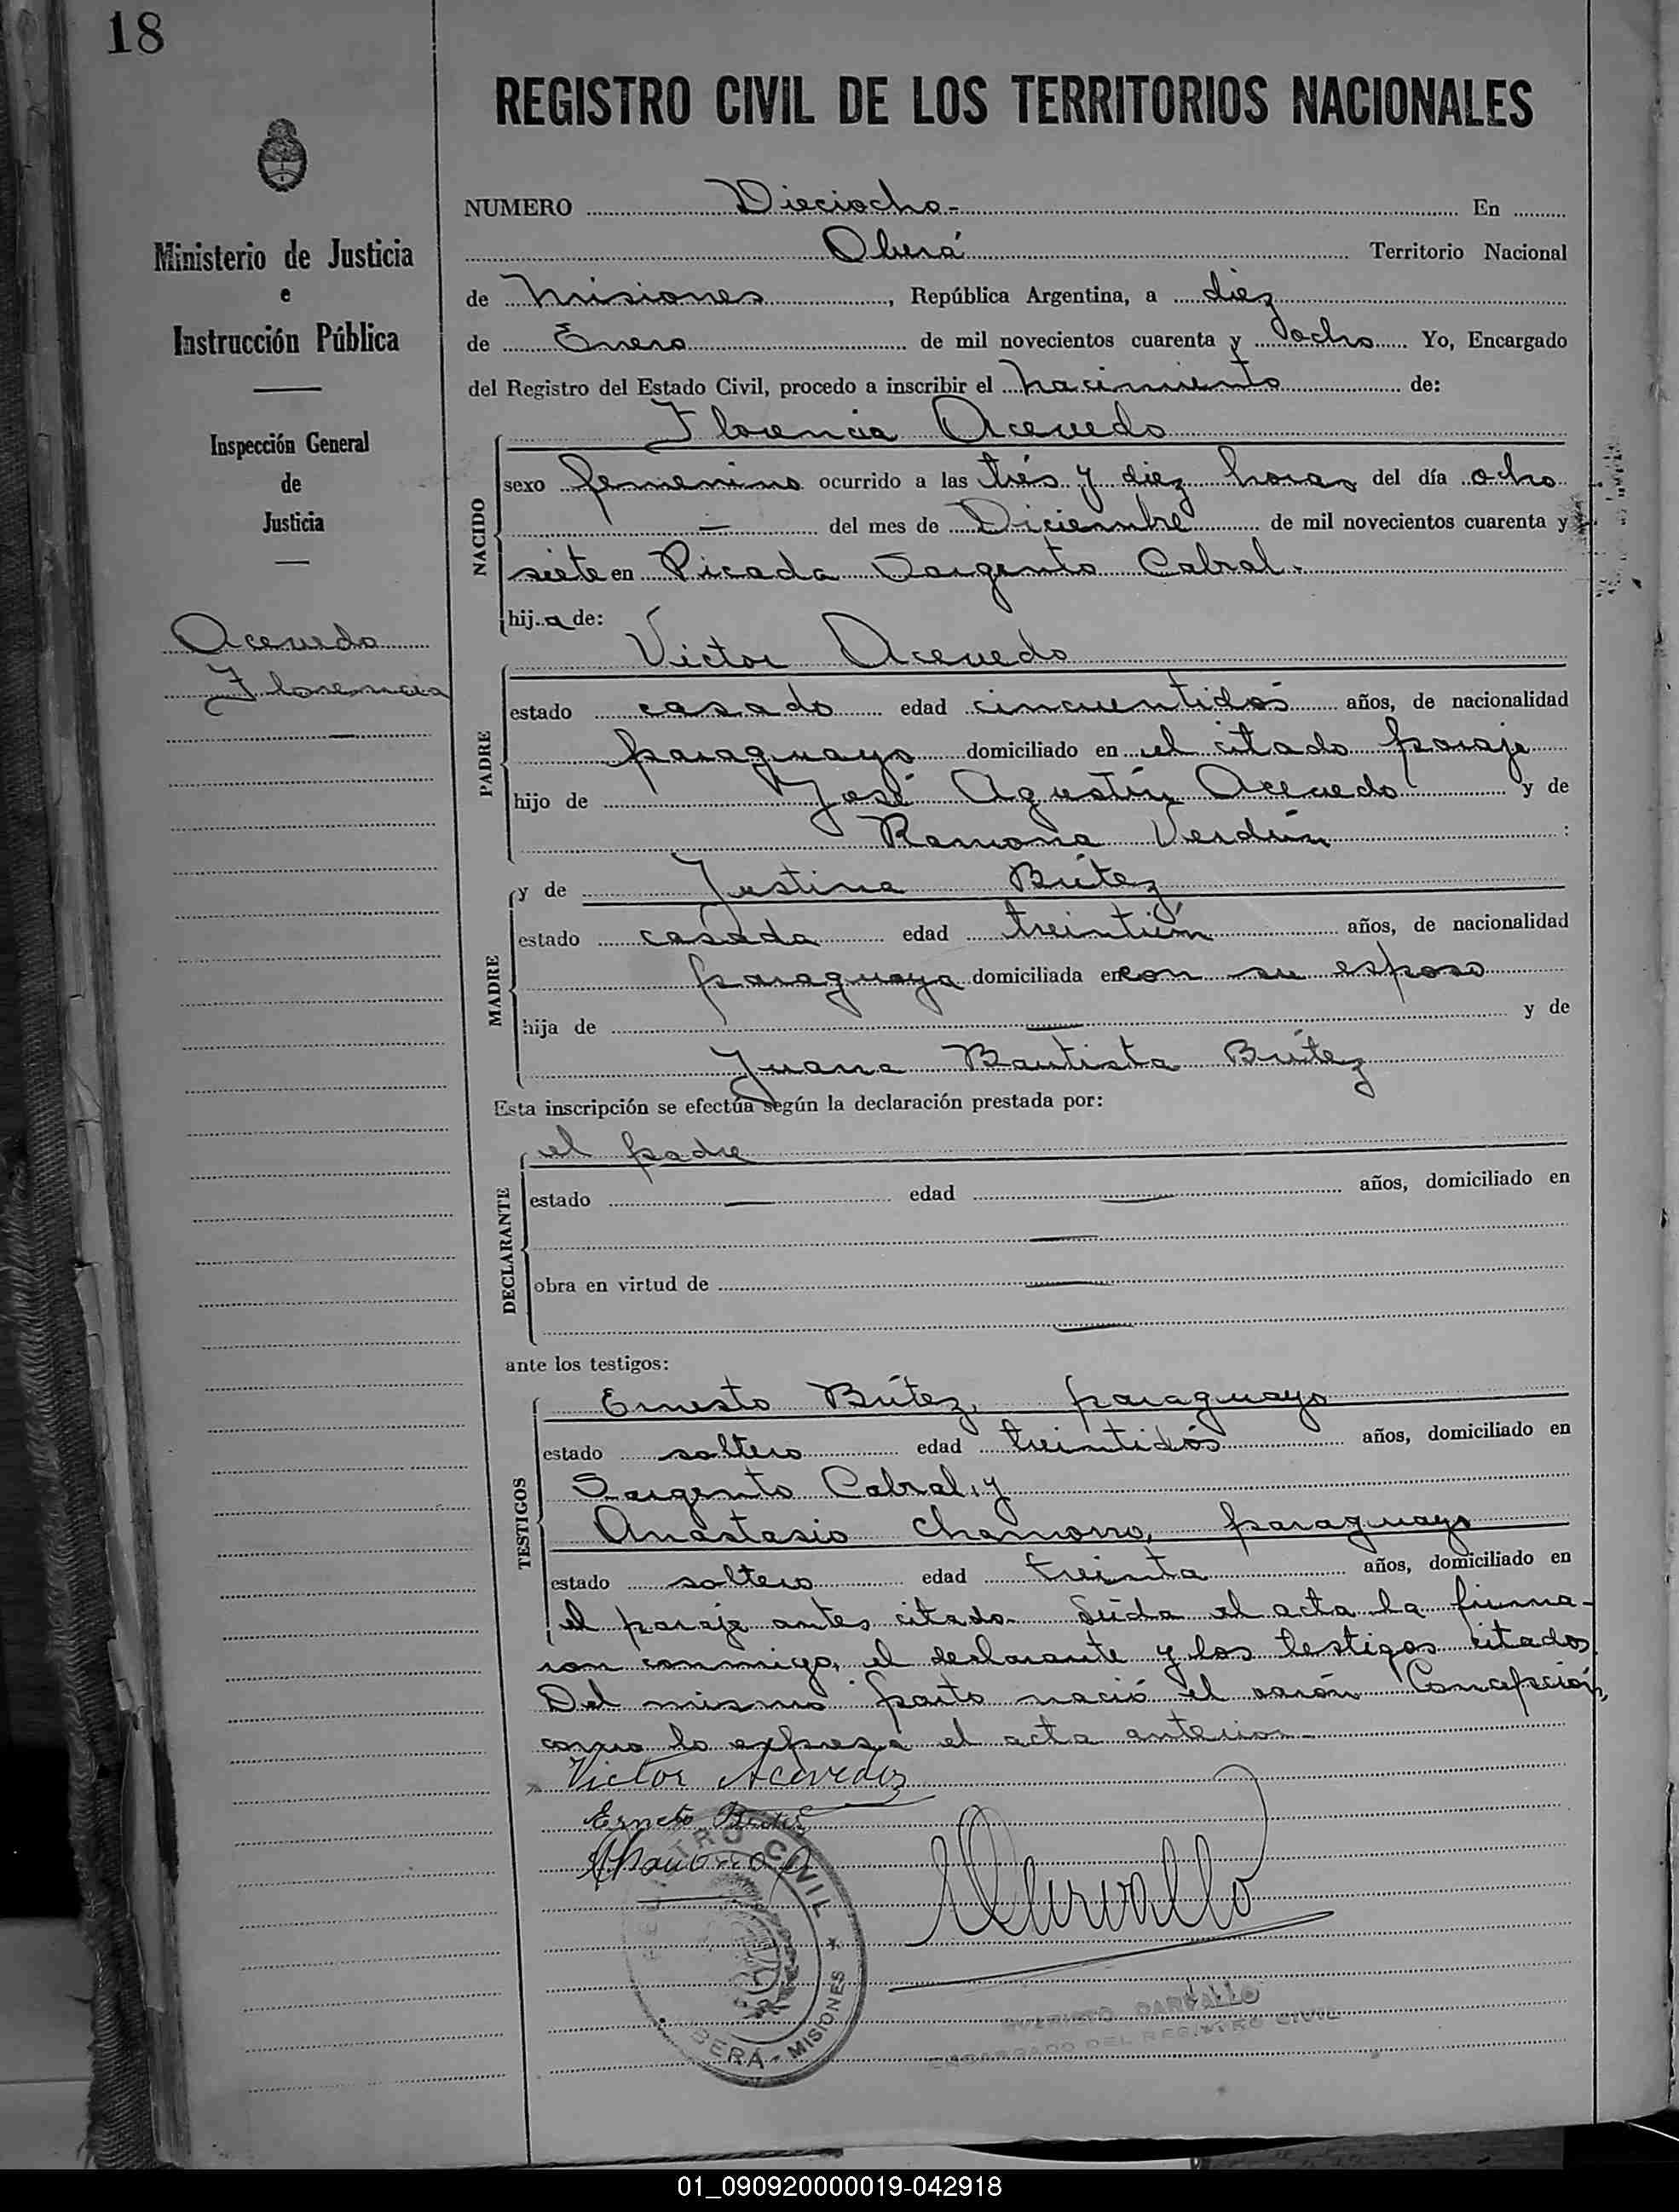 18
REGISTRO CIVIL DE LOS TERRITORIOS NACIONALES
Ministerio de Justicia
e
Instrucción Pública
Inspección General
de
Justicia
Acevedo
Florencia
NUMERO Dieciocho.- En
Oberá Territorio Nacional
de Misiones, República Argentina, a diez
de Enero de mil novecientos cuarenta y ocho Yo, Encargado
del Registro del Estado Civil, procedo a inscribir el nacimiento de:
Florencia Acevedo
NACIDO
sexo femenino ocurrido a las trés y diez horas del día ocho
— del mes de Diciembre de mil novecientos cuarenta y
siete en Picada Sargento Cabral.
hij a de:
Victor Acevedo
PADRE
estado casado edad cincuentidós años, de nacionalidad
paraguayo domiciliado en el citado paraje
hijo de José Agustín Acevedo y de
Ramona Verdún :
MADRE
y de Justina Brítez
estado casada edad treintiún años, de nacionalidad
paraguaya domiciliada en con su esposo
hija de — y de
Juana Bautista Brítez
Esta inscripción se efectúa según la declaración prestada por:
DECLARANTE
el padre
estado — edad — años, domiciliado en
—
obra en virtud de —
—
ante los testigos:
TESTIGOS
Ernesto Brítez, paraguayo
estado soltero edad treintidós años, domiciliado en
Sargento Cabral, y
Anastasio Chamorro, paraguayo
estado soltero edad treinta años, domiciliado en
el paraje antes citado. Leída el acta la firma-
ron conmigo, el declarante y los testigos citados.
Del mismo parto nació el varón Concepción,
como lo expresa el acta anterior.-
Victor Acevedoz
Ernesto Britez
AChamorro
Carvallo
REGISTRO CIVIL
OBERÁ - MISIONES
EVARISTO CARVALLO
ENCARGADO DEL REGISTRO CIVIL
01_090920000019-042918